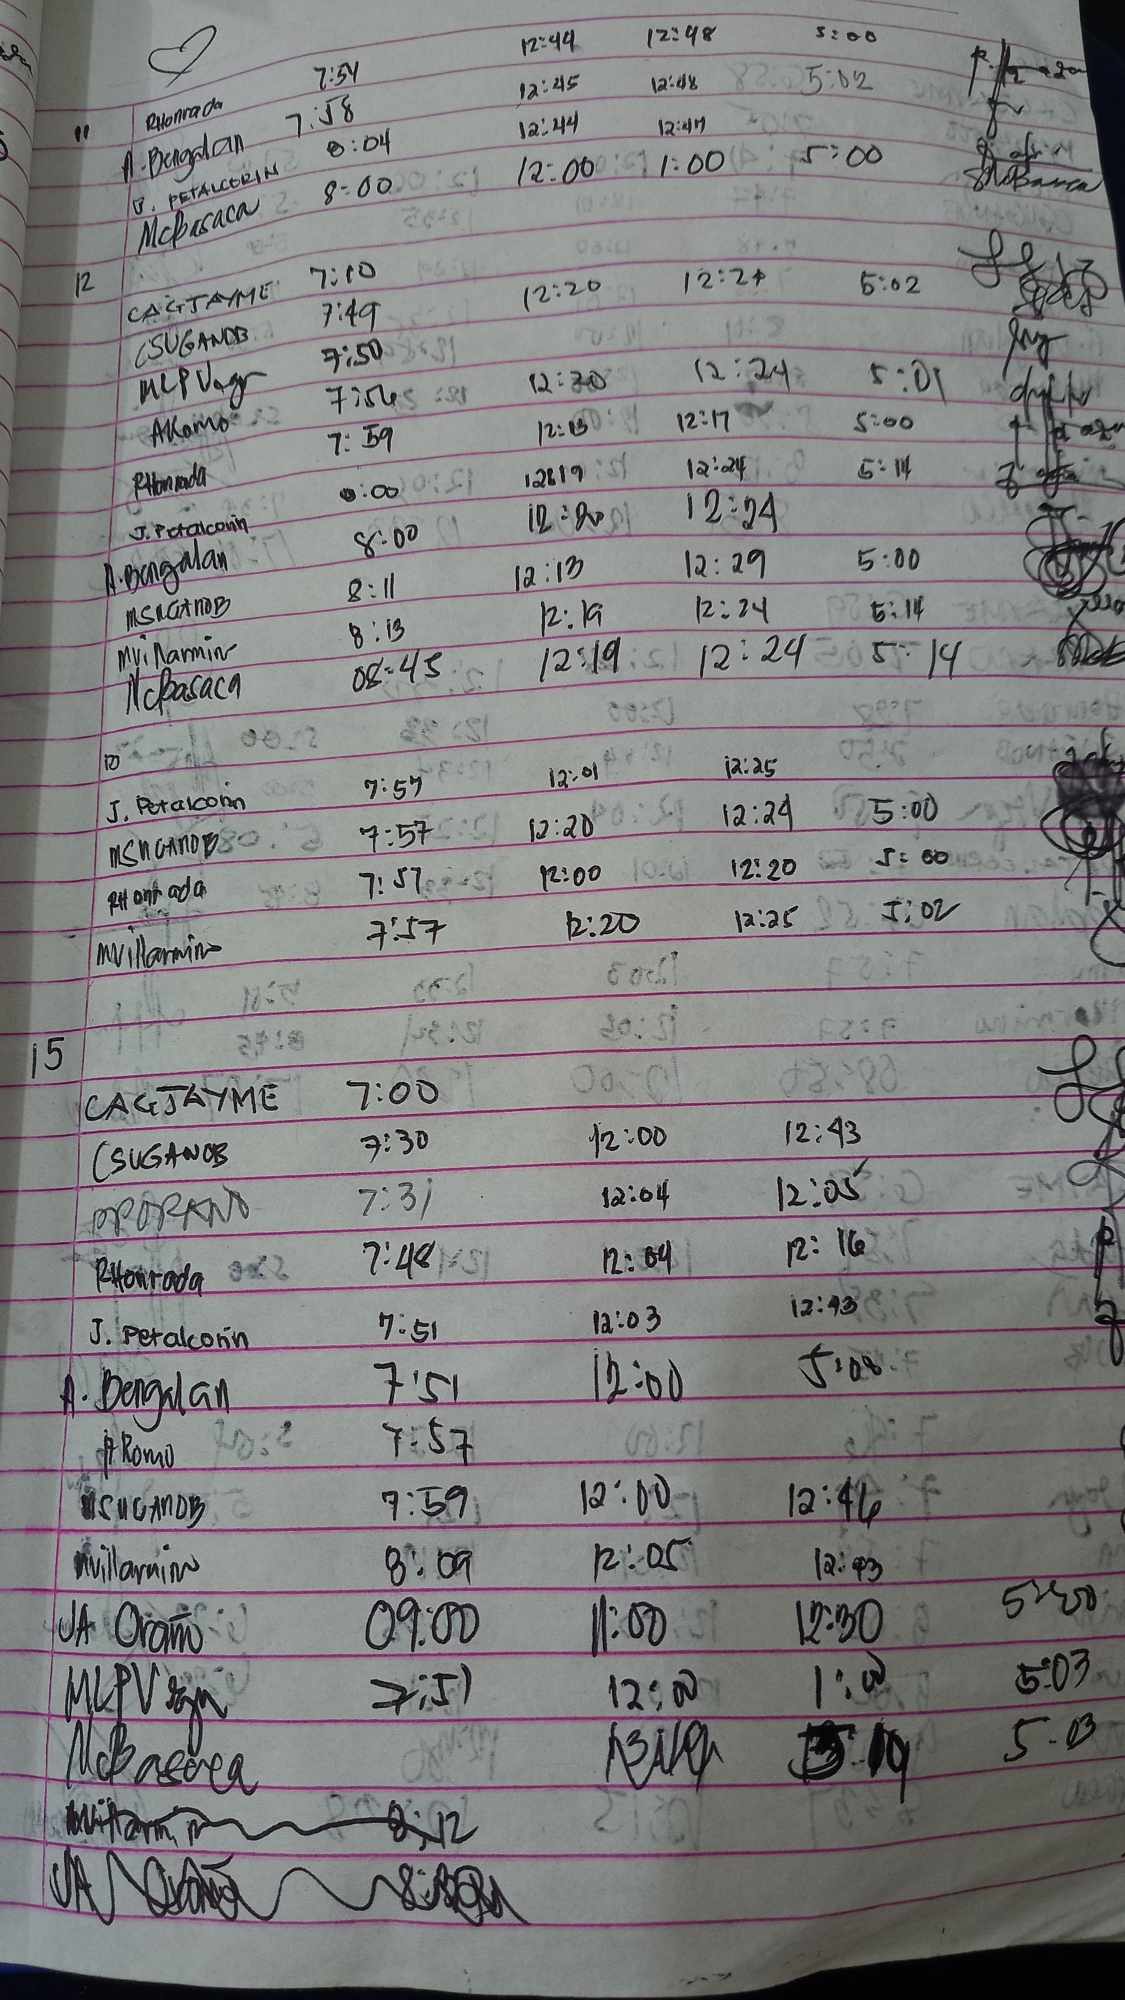 11 RHonrada 7:54 12:44 12:48 5:00
A. Bengalan 7:58 12:45 12:48 5:02
J. PETALCORIN 8:04 12:44 12:47
McBasaca 8:00 12:00 1:00 5:00
12
CAGJAYME 7:10
CSUGANOB 7:49 12:20 12:24 5:02
MLPVergr 7:50
ARomo 7:56 12:20 12:24 5:01
RHonrada 7:59 12:13 12:17 5:00
J. Petalcorin 8:00 12:19 12:24 5:14
A. Bengalan 8:00 12:20 12:24
MSUGANOB 8:11 12:13 12:29 5:00
MVillarmin 8:13 12:19 12:24 5:14
McBasaca 08:45 12:19 12:24 5:14
10
J. Petalcorin 7:57 12:01 12:25
MSUGANOB 7:57 12:20 12:24 5:00
RHonrada 7:57 12:00 12:20 5:00
MVillarmin 7:57 12:20 12:25 5:02
15
CAGJAYME 7:00
CSUGANOB 7:30 12:00 12:43
7:31 12:04 12:05
RHonrada 7:48 12:04 12:16
J. Petalcorin 7:51 12:03 12:43
A. Bengalan 7:51 12:00 5:08
ARomo 7:57
MSUGANOB 7:59 12:00 12:46
MVillarmin 8:09 12:05 12:43
JA Oraño 09:00 11:00 12:30 5:00
7:51 12:00 1:00 5:03
McBasaca 5:03
MVillarmin 8:12
JA Oraño